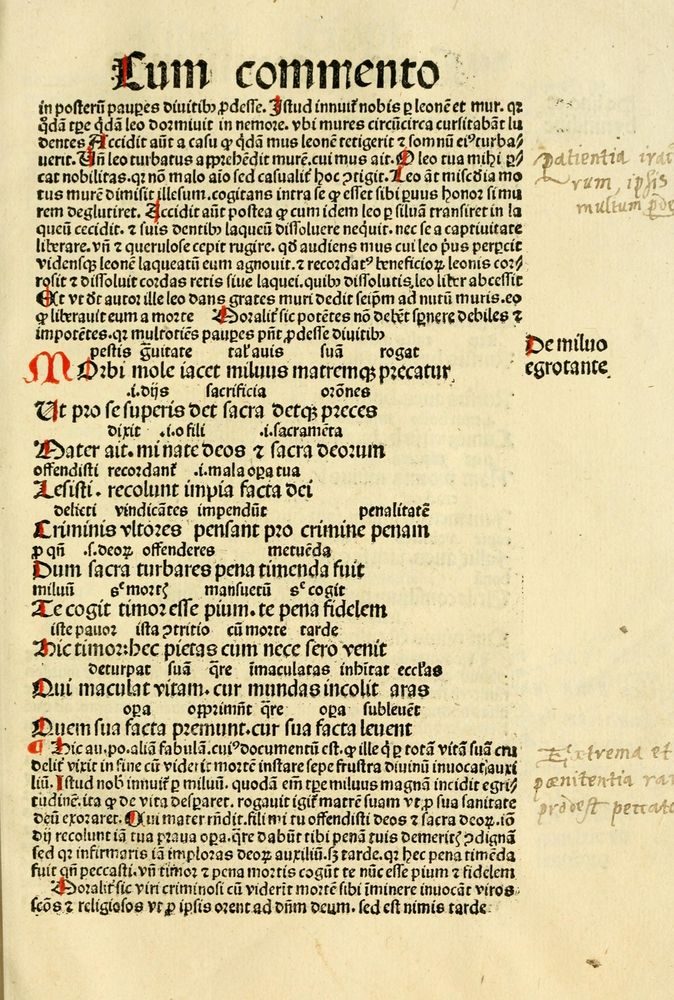 Cum commento
in posterū paup̲es diuitibꝰ ꝓdesse. Istud innuit̄ nobis p̲ leonē et mur. qꝛ
q̇dā tp̲e q̇dā leo dormiuit in nemore. vbi mures circūcirca cursitabāt lu
dentes Accidit aūt a casu ꝙ q̇dā mus leonē tetigerit ⁊ somnū eiꝰ turba⸗
uerit. Vn̄ leo turbatus app̲hēdit murē. cui mus ait. O leo tua mihi p̲⸗
cat nobilitas. qꝛ nō malo aīo sed casualit̄ hoc ꝯtigit. Leo āt mīs̄edīa mo
tus murē dimisit illesum. cogitans intra se ꝙ esset sibi p̲uus honor si mu
rem deglutiret. Accidit aūt postea ꝙ cum idem leo p̲ siluā transiret in la
queū cecidit. ⁊ suis dentibꝰ laqueū dissoluere nequit. nec se a captiuitate
liberare. vn̄ ⁊ querulose cepit rugire. qd̄ audiens mus cui leo p̄us pep̲cit
vidensqꝫ leonē laqueatū eum agnouit. ⁊ recordatꝰ beneficioꝝ leonis cor⸗
rosit ⁊ dissoluit cordas retis siue laquei. quibꝰ dissolutis, leo liber abcessit
Et vt dt̄ autor ille leo dans grates muri dedit seip̄m ad nutū muris. eo
ꝙ liberauit eum a morte Moralit̄ sic potētes nō debēt sp̲nere debiles ⁊
impotētes. qꝛ multotiēs paup̲es pn̄t ꝓdesse diuitibꝰ
pestis g̈uitate tal'auis suā rogat
MOrbi mole iacet miluus matremqꝫ precatur
De miluo
egrotante
.i. dijs sacrificia orōnes
Ut pro se superis det sacra detqꝫ preces
dixit .i. o fili .i. sacramēta
Mater ait. mi nate deos ⁊ sacra deorum
offendisti recordant̄ .i. mala oꝑa tua
Lesisti. recolunt impia facta dei
delicti vindicātes impendūt penalitatē
Criminis vltores pensant pro crimine penam
ꝓ qn̄ .s. deoꝝ offenderes metuēda
Dum sacra turbares pena timenda fuit
miluū sc̄ mortꝭ mansuetū sc̄ cogit
Te cogit timor esse pium. te pena fidelem
iste pauor ista ꝯtritio cū morte tarde
Hic timor: hec pietas cum nece sero venit
deturpat suā q̄re īmaculatas inhītat eccl'as
Qui maculat vitam. cur mundas incolit aras
oꝑa opprimūt q̄re oꝑa subleuēt
Quem sua facta premunt. cur sua facta leuent
¶ Hic au. po. aliā fabulā. cuiꝰ documentū est. ꝙ ille q̇ p̲ totā vitā suā cru
delit̄ vixit in fine cū viderit mortē instare sepe frustra diuinū inuocat auxi
liū. Istud nob̄ innuit̄ p̲ miluū. quodā em̄ tp̲e miluus magnā incidit egri⸗
tudinē. ita ꝙ de vita desp̲aret. rogauit igit̄ matrē suam vt ꝓ sua sanitate
deū exoraret. Cui mater rn̄dit. fili mi tu offendisti deos ⁊ sacra deoꝝ. iō
dij recolunt iā tua praua oꝑa. q̄re dabūt tibi penā tuis demeritꝭ ꝯdignā
sed qꝛ infirmaris iā imploras deoꝝ auxiliū. sꝫ tarde. qꝛ hec pena timēda
fuit qn̄ peccasti. vn̄ timor ⁊ pena mortis cogūt te nūc esse pium ⁊ fidelem
Moralit̄ sic viri criminosi cū viderīt mortē sibi īminere inuocāt viros
sc̄os ⁊ religiosos vt ꝓ ip̄sis orent ad dn̄m deum. sed est nimis tarde
Patientia irat
rum, ipsis
multum ꝓde
Extrema et
pœnitentia ra
prodest peccato